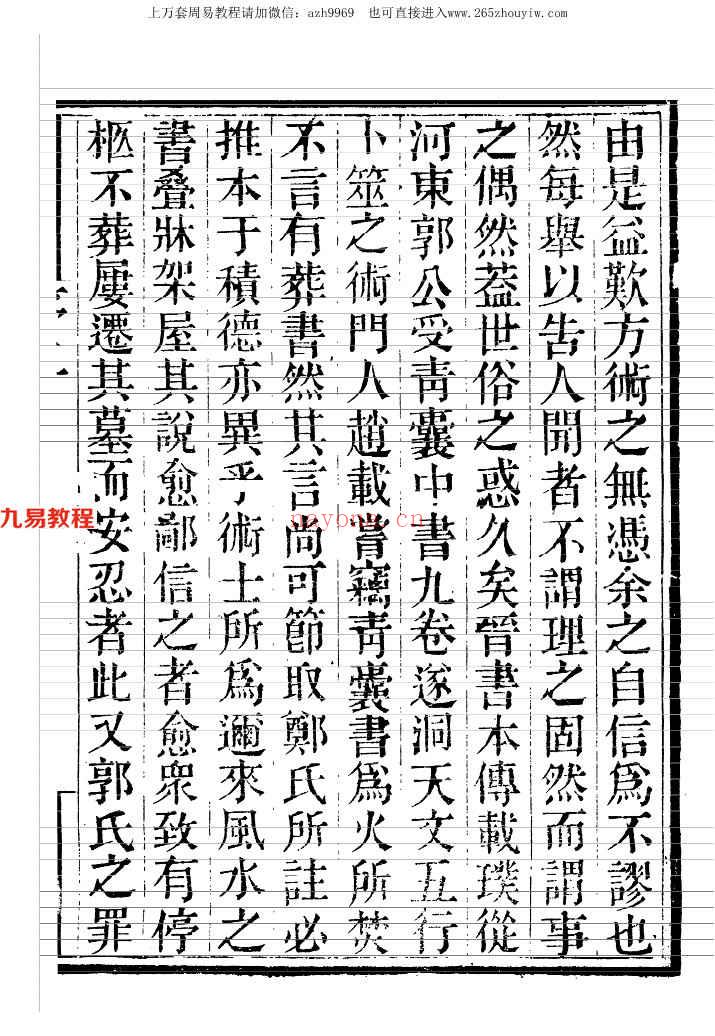 上万套周易教程请加微信：azh9969 也可直接进入www.265zhouyiw.com
由是益歎方術之無憑余之自信爲不謬也
然每舉以告人聞者不謂理之固然而謂事
之偶然蓋世俗之惑久矣晉書本傳載璞從
河東郭公受靑囊中書九卷遂洞天文五行
卜筮之術門人趙載嘗竊靑囊書爲火所焚
不言有葬書然其言尚可節取鄭氏所註必
推本于積德亦異乎術士所爲邇來風水之
書疊牀架屋其說愈鄙信之者愈衆致有停
柩不葬屢遷其墓而安忍者此又郭氏之罪
九易教程
nayong.cn